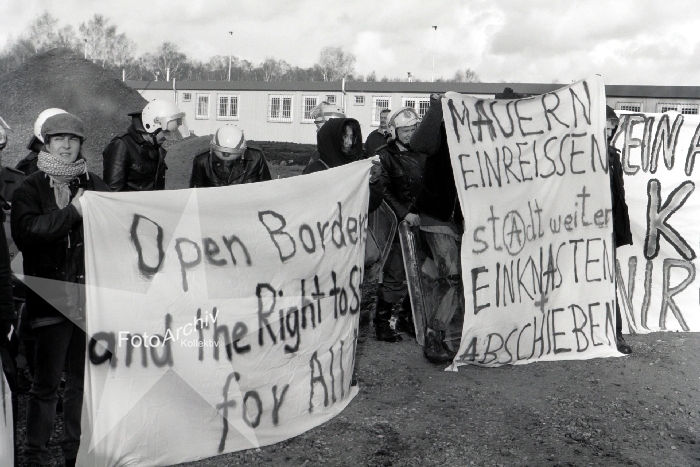 Open Borders
and the Right to S
for All!
MAUERN
EINREISSEN
stAdt weiter
EINKNASTEN
+
ABSCHIEBEN
EIN A
K
NIR
FotoArchiv
Kollektiv